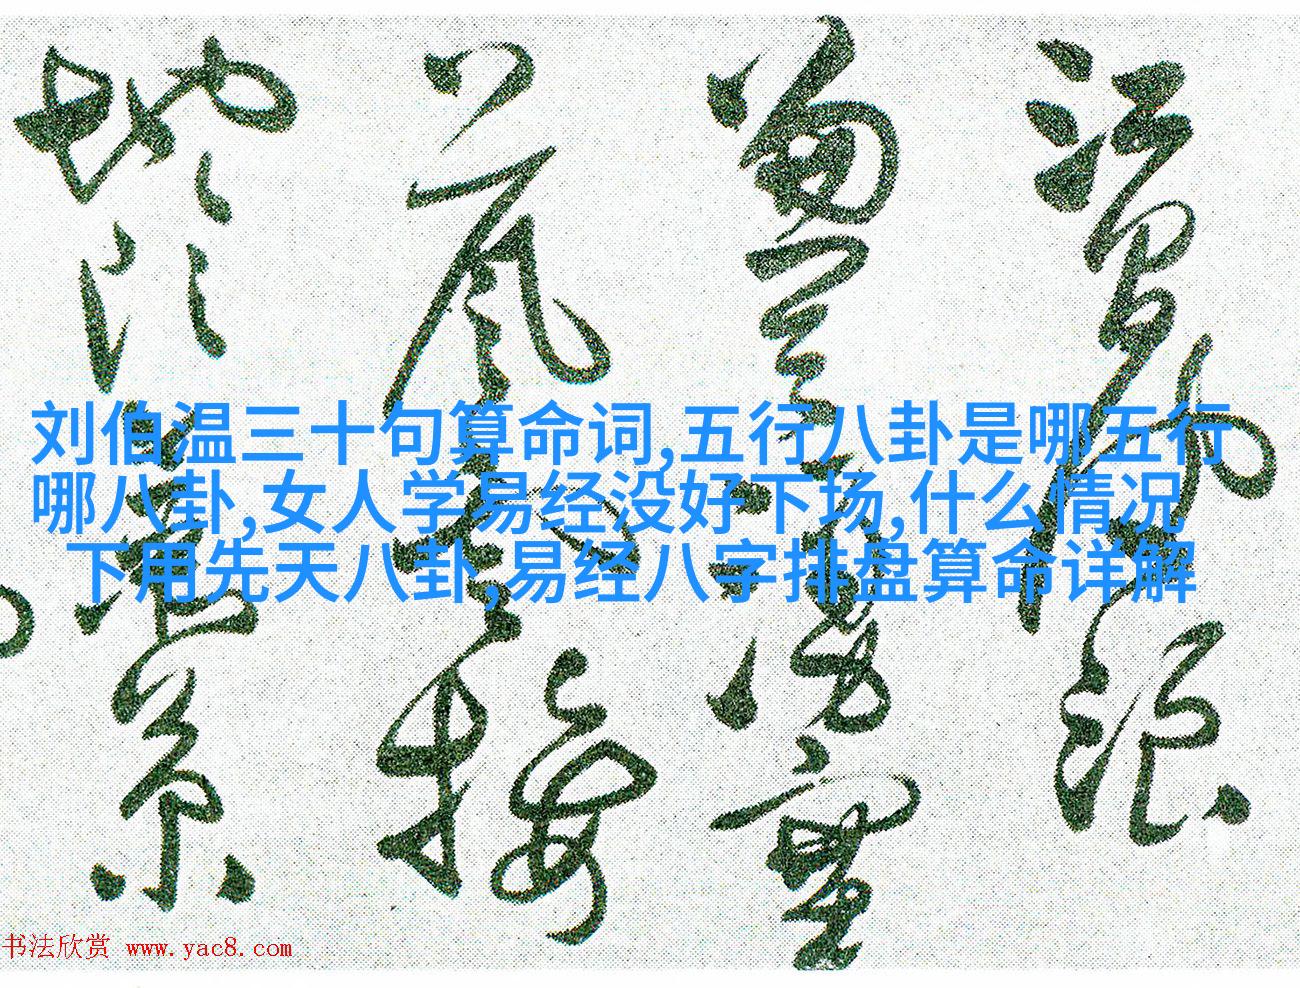 江間波浪
兼天湧塞
上風雲接
地陰
刘伯温三十句算命词,五行八卦是哪五行
哪八卦,女人学易经没好下场,什么情况
下用先天八卦,易经八字排盘算命详解
书法欣赏 www.yac8.com